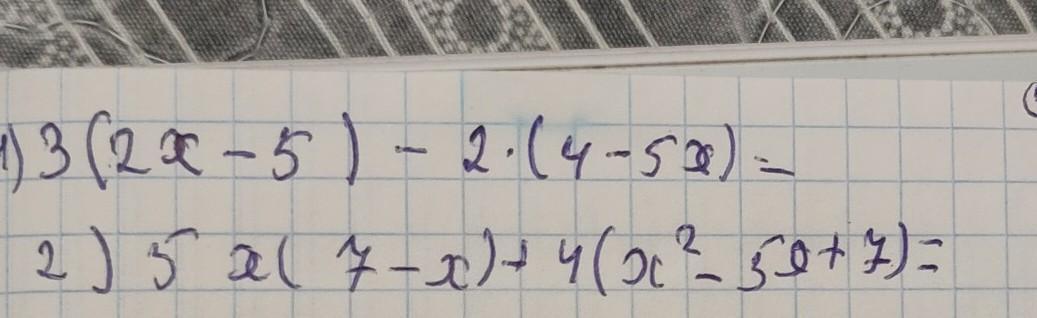 1) 3(2x-5) - 2·(4-5x)=
2) 5x(7-x)+4(x²-5x+7)=